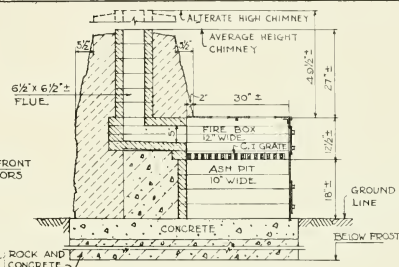 ALTERATE HIGH CHIMNEY
AVERAGE HEIGHT
CHIMNEY
5½"
4½"
6½" X 6½" ±
FLUE
2"
30" ±
49½" ±
27" ±
FIRE BOX
12" WIDE
5"
C.I GRATE
12½" ±
ASH PIT
10" WIDE
18" ±
FRONT
ORS
GROUND
LINE
CONCRETE
BELOW FROST
ROCK AND
CONCRETE